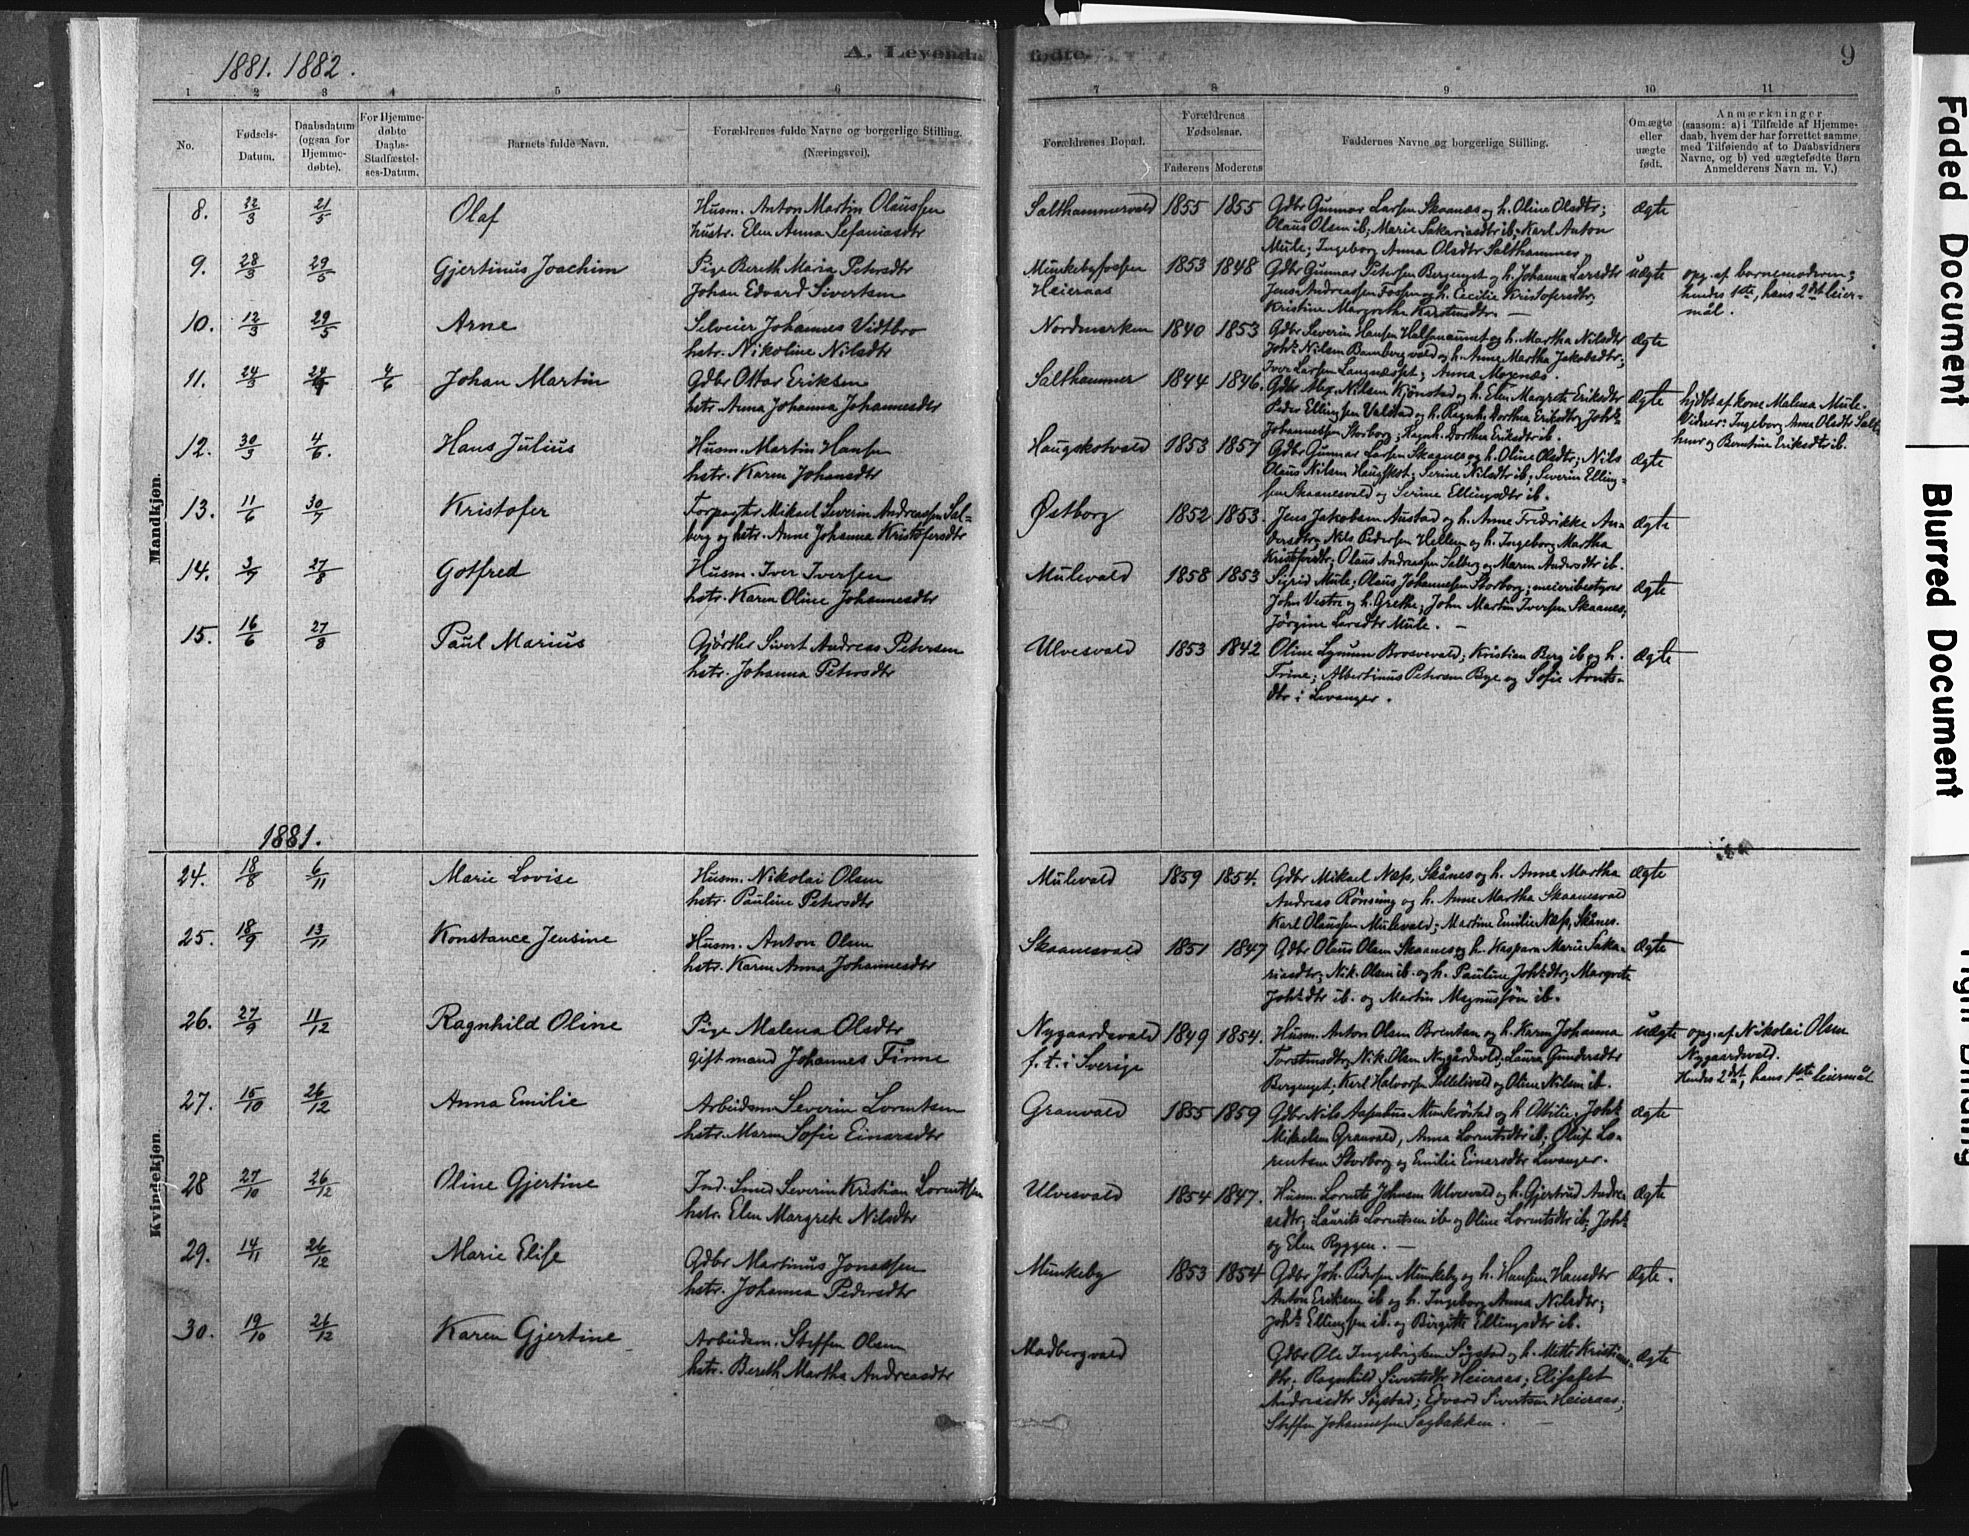 1881. 1882.
A. Levende
fødte.
9
1 2 3 4 5 6 7 8 9 10 11
No.
Fødsels-Datum.
Daabsdatum (ogsaa for Hjemmedøbte).
For Hjemmedøbte Daabs-Stadfæstelses-Datum.
Barnets fulde Navn.
Forældrenes fulde Navne og borgerlige Stilling. (Næringsvei).
Forældrenes Bopæl.
Forældrenes Fødselsaar.
Faderens Moderens
Faddernes Navne og borgerlige Stilling.
Om ægte eller uægte født.
Anmærkninger
(saasom: a) i Tilfælde af Hjemme-
daab, hvem der har forrettet samme,
med Tilføiende af to Daabsvidners
Navne, og b) ved uægtefødte Børn
Anmelderens Navn m. V.)
Mandkjøn.
8. 22/3 21/5 Olaf Husm. Anton Martin Olaussen Salthammervald 1855 1855 Gdbr Gunnar Larsen Skaanes og h. Oline Olsdtr; ægte
hustr. Elen Anna Sefaniasdtr Olaus Olsen ib; Marie Sakariasdtr ib; Karl Anton
Mule; Ingeborg Anna Olsdtr Salthammer
9. 28/3 29/5 Gjertinus Joachim Pige Bereth Maria Petersdtr Munkebyfossen 1853 1848 Gdbr Gunnar Petersen Bergenget og h. Johanna Larsdtr uægte opg. af barnemoderen;
Johan Edvard Sivertsen Heieraas Jens Andreassen Fossen og h. Cecilie Kristofersdtr; hendes 1ste, hans 2det leier-
Kristine Margrethe Karstensdtr. — mål.
10. 12/3 29/5 Arne Selveier Johannes Vidtbro Nordmarken 1840 1853 Gdbr Severin Hansen Halsanaunet og h. Martha Nilsdtr ægte
hstr. Nikoline Nilsdtr Johs Nilsen Bambergvald og h. Anne Martha Jakobsdtr;
Iver Larsen Langnæsset; Anna Moxnes.
11. 24/3 4/6 Johan Martin Gdbr Ottar Eriksen Salthammer 1844 1846. Gdbr Alex. Nilsen Kjønstad og h. Elen Margrete Eriksdtr ægte hjdbt af kone Malena Mule.
hstr. Anna Johanna Johannesdtr Peder Ellingsen Valstad og h. Ragnh. Dorthea Eriksdtr; Johs Vidner: Ingeborg Anna Olsdtr Salt-
Johannessen Storborg; Ragnh. Dorthea Eriksdtr ib. hmr og Berntine Eriksdtr ib.
12. 30/3 4/6. Hans Julius Husm. Martin Hansen Haugskotvald 1853 1857 Gdbr Gunnar Larsen Skaanes og h. Oline Olsdtr; Nils ægte
hstr. Karen Johansdtr Olaus Nilsen Haugskot; Serine Nilsdtr ib; Severin Elling-
sen Skaanesvald og Serine Ellingsdtr ib.
13. 11/6 30/7 Kristofer Forpagter Mikael Severin Andreassen Sal- Østborg 1852 1853. Jens Jakobsen Austad og h. Anne Fredrikke An- ægte
berg og hstr. Anne Johanna Kristofersdtr dersdtr; Nils Pedersen Hellem og h. Ingeborg Martha
Kristofersdtr; Olaus Andreassen Salberg og Maren Andersdtr ib.
14. 3/7 27/8 Gotfred Husm. Iver Iversen Mulevald 1858 1853 Sigrid Mule; Olaus Johannesen Storborg; meieribestyrer ægte
hstr. Karen Oline Johannesdtr John Vestre og h. Grethe; John Martin Iversen Skaanes;
Jørgine Larsdtr Mule. —
15. 16/6 27/8 Paul Marius Gjørtler Sivert Andreas Petersen Ulvesvald 1853 1842 Oline Lynum Brosvevald; Kristian Berg ib og h. ægte
hstr. Johanna Petersdtr Trine; Albertinus Petersen Bye og Sofie Arnts-
dtr i Levanger.
1881.
Kvindekjøn.
24. 18/8 6/11 Marie Lovise Husm. Nikolai Olsen Mulevald 1859 1854. Gdbr Mikael Næss, Skånes og h. Anne Martha ægte
hstr. Pauline Petersdtr Andreas Rönsing og h. Anne Martha Skaanesvald
Karl Olaussen Mulevald; Martine Emilie Næss, Skånes.
25. 18/9 13/11 Konstance Jensine Husm. Anton Olsen Skaanesvald 1851 1847 Gdbr Olaus Olsen Skaanes og h. Kaspara Marie Saka- ægte
hstr. Karen Anna Johannesdtr riasdtr; Nik. Olsen ib. og h. Pauline Johsdtr; Margrete
Johsdtr ib. og Martin Magnussøn ib.
26. 27/9 11/12 Ragnhild Oline Pige Malena Olsdtr Nygaardsvald 1849 1854. Husm. Anton Olsen Brentan og h. Karen Johanna uægte opg. af Nikolai Olsen
gift mand Johannes Finne f. t. i Sverige Torstensdtr; Nik. Olsen Nygårdsvald; Laura Gundersdtr Nygaardsvald.
Bergenget; Karl Halvorsen Sellelivald og Oline Nilsen ib. Hendes 2det, hans 1ste leiermål
27. 15/10 26/12 Anna Emilie Arbeidsm Severin Lorentsen Granvald 1855 1859 Gdbr Nils Aspelius Munkrøstad og h. Ottilie; Johs ægte
hstr. Maren Sofie Einersdtr Mikaelsen Granvald, Anna Lorntsdtr ib; Oluf Lo-
rentsen Storborg og Emilie Einarsdtr Levanger.
28 27/10 26/12 Oline Gjertine Ind. Smed Severin Kristian Lorentsen Ulvesvald 1854 1847. Husm. Lornts Johnsen Ulvesvald og h. Gjertrud Andre- ægte
hstr. Elen Margrete Nilsdtr asdtr; Laurits Lorntsen ib og Oline Lorntsdtr ib; Johs
og Elen Ryggen. —
29. 14/11 26/12 Marie Elise Gdbr Martinus Jonassen Munkeby 1853 1854 Gdbr Joh. Pedersen Munkeby og h. Hansine Hansdtr ægte.
hstr. Johanna Pedersdtr Anton Eriksen ib og h. Ingeborg Anna Nilsdtr;
Johs Ellingsen ib. og Birgitte Ellingsdtr ib.
30. 19/10 26/12 Karen Gjertine Arbeidsm. Steffen Olsen Madbergvald Gdbr Ole Ingebrigtsen Søgstad og h. Mette Kristians- ægte
hstr. Bereth Martha Andreasdtr dtr; Ragnhild Sivertsdtr Heieraas; Elisabet
Andreasdtr Søgstad; Edvard Sivertsen Heieraas;
Steffen Johannessen Sagbakken. —
Faded Document
Blurred Document
Tight Binding